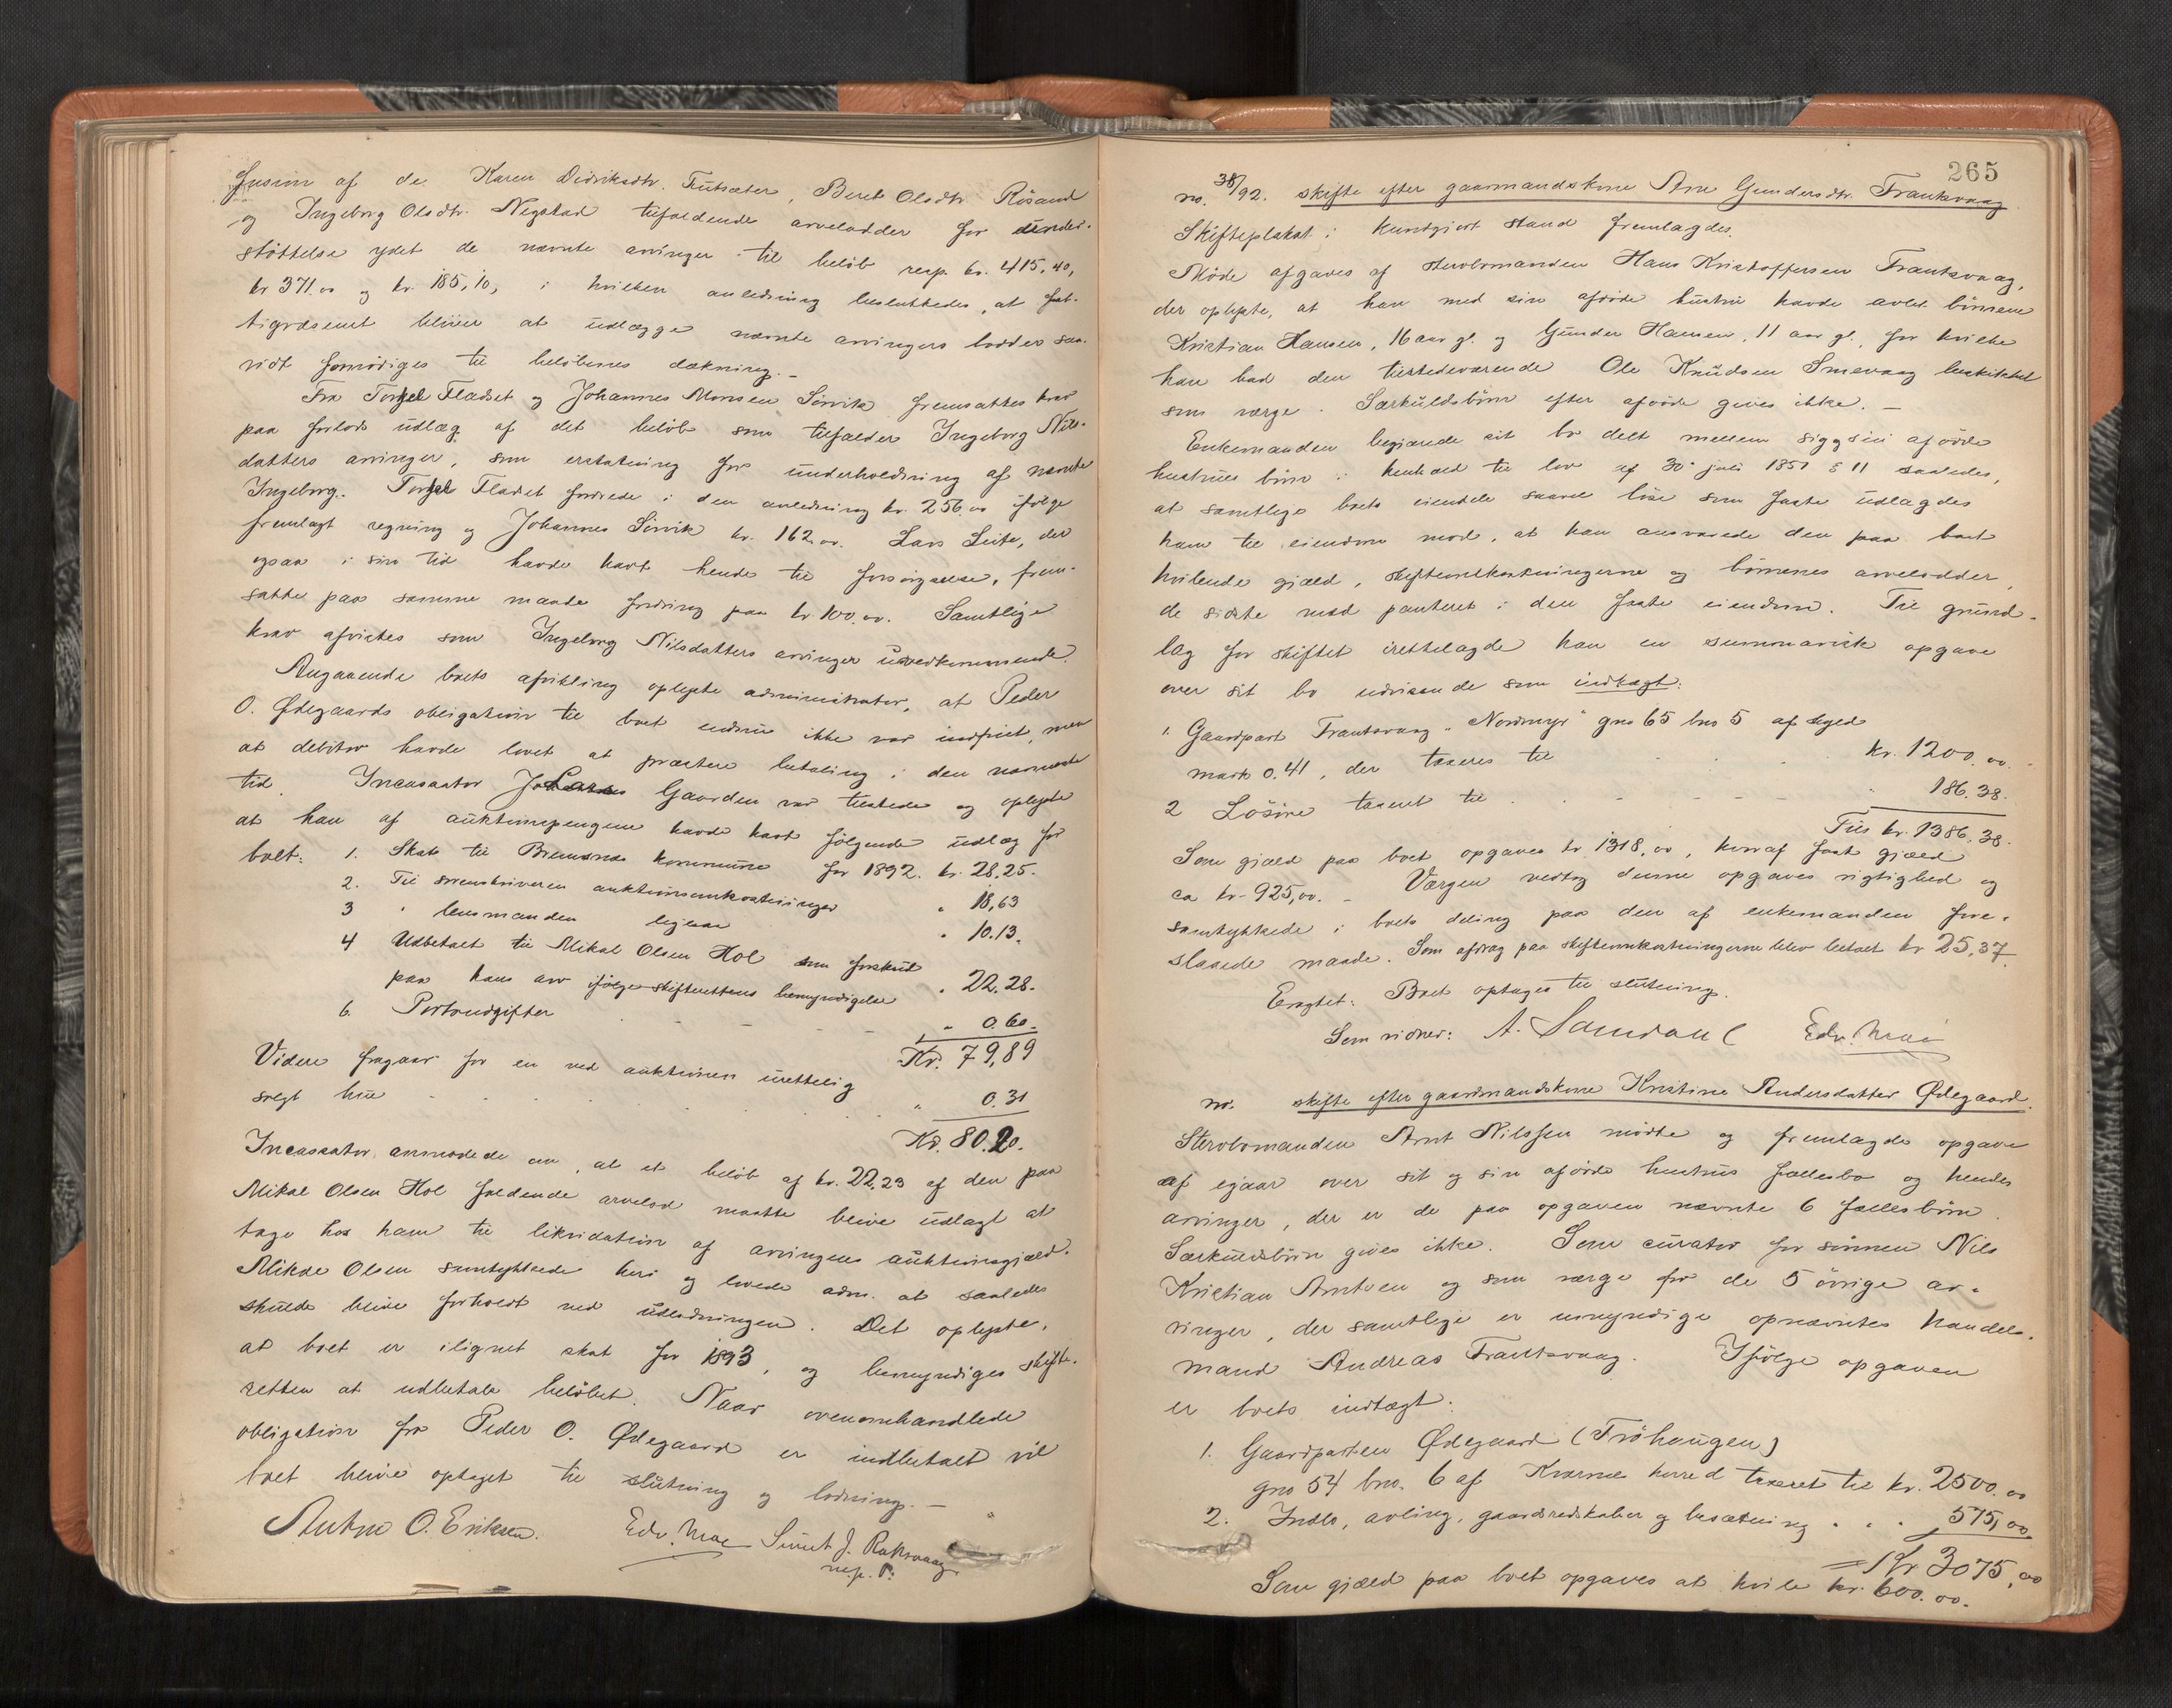 fusion af de Karen Didriksdtr. Futsæter, Beret Olsdtr. Rösand
og Ingeborg Olsdtr. Negstad tilfaldende arvelodder for under-
støttelse ydet de nævnte arvinger til beløb resp. kr. 415,40,
kr 371.00 og kr. 185,10, i hvilken anledning besluttedes, at fat-
tigvæsenet bliver at udlægge nævnte arvingers lodder saa-
vidt fornødiges til beløbenes dækning. –
Fra Torkel Fladset og Johannes Monsen Sörvik fremsattes krav
paa forlods udlæg af det beløb som tilfalder Ingeborg Nils-
datters arvinger, som erstatning for underholdning af nævnte
Ingeborg. Torkel Fladset fordrede i den anledning kr. 256.00 ifølge
fremlagt regning og Johannes Sörvik kr. 162.00. Lars Leite, der
ogsaa i sin tid havde havt hende til forsørgelse, frem-
satte paa samme maade fordring paa kr. 100.00. Samtlige
krav afvistes som Ingeborg Nilsdatters arvinger uvedkommende.
Angaaende boets afvikling oplyste administrator, at Peder
O. Ødegaards obligation til boet endnu ikke var indfriet, men
at debitor havde lovet at præstere betaling i den nærmeste
tid. Incassator Gaarden var tilstede og oplyste
at han af auktionspengene havde havt følgende udlæg for
boet: 1. Skat til Bremsnæs kommune for 1892. kr. 28.25.
2. Til sorenskriveren auktionsomkostninger " 18,63
3 " lensmanden ligesaa " 10.13.
4 Udbetalt til Mikal Olsen Hol som forskud
paa hans arv ifølge skifterettens bemyndigelse " 22.28.
6. Portoudgifter " 0.60.
Kr. 79,89
Videre fragaar for en ved auktionen urettelig
solgt hue " 0.31
Kr. 80.20.
Incassator anmodede om, at et beløb af kr. 22,23 af den paa
Mikal Olsen Hol faldende arvelod maatte blive udlagt at
tage hos ham til likvidation af arvingens auktionsgjæld.
Mikal Olsen samtykkede heri og lovede adm. at saaledes
skulde blive forholdt ved udlodningen. Det oplyste,
at boet er ilignet skat for 1893, og bemyndiges skifte-
retten at udbetale beløbet. Naar ovenomhandlede
obligation fra Peder O. Ødegaard er indbetalt vil
boet blive optaget til slutning og lodning. –
Anton O. Eriksen. Edv. Moe Sivert J. Ramsvaag
m.p.P.
265
no. 38/92. skifte efter gaarmandskone Ane Gundersdtr. Frantsvaag
Skifteplakat i kundgjort stand fremlagdes.
Møde afgaves af stervbomanden Hans Kristoffersen Frantsvaag,
der oplyste, at han med sin afdøde hustru havde avlet børnene
Kristian Hansen, 16 aar gl. og Gunder Hansen, 11 aar gl., for hvilke
han bad den tilstedeværende Ole Knudsen Smevaag beskikket
som værge. Særkuldsbörn efter afdøde gives ikke. –
Enkemanden begjærede sit bo delt mellem sig og sin afdøde
hustrues börn i henhold til lov af 30te juli 1851 § 11 saaledes,
at samtlige boets eiendele saavel løse som faste udlagdes
ham til eiendom mod, at han ansvarede den paa boet
hvilende gjæld, skifteomkostningerne og børnenes arvelodder,
de sidste mod panteret i den faste eiendom. Til grund-
lag for skiftet irettelagde han en summarisk opgave
over sit bo udvisende som indtægt:
1. Gaardpart Frantsvaag "Nordmyr" gno 65 bno 5 af skyld
mark 0.41, der taxeres til kr. 1200.00.
2 Løsøre taxeret til " 186.38.
Tils kr. 1386.38.
Som gjæld paa boet opgaves kr. 1318,00, hvoraf fast gjæld
ca kr. 925,00. – Værgen vedtog denne opgaves rigtighed og
samtykkede i boets deling paa den af enkemanden fore-
slaaede maade. Som afdrag paa skifteomkostningerne blev betalt kr 25,37.
Eragtet: Boet optages til slutning.
Som vidner: A. Samdahl Edv. Moe
no. skifte efter gaardmandskone Kristine Andersdatter Ødegaard.
Stervbomanden Arnt Nilssen mødte og fremlagde opgave
af igaar over sit og sin afdøde hustrus fællesbo og hendes
arvinger, der er de paa opgaven nævnte 6 fællesbörn.
Særkuldsbörn gives ikke. Som curator for sönnen Nils
Kristian Arntsen og som værge for de 5 øvrige ar-
vinger, der samtlige er umyndige opnævntes handels-
mand Andreas Frantsvaag. Ifølge opgaven
er boets indtægt:
1. Gaardparten Ødegaard (Tröhaugen)
gno 54 bno. 6 af Kværnes herred taxeret til kr. 2500.00
2. Indbo, avling, gaardsredskaber og besætning . . . 575,00
Kr 3075,00
Som gjæld paa boet opgaves at hvile kr. 600.00.